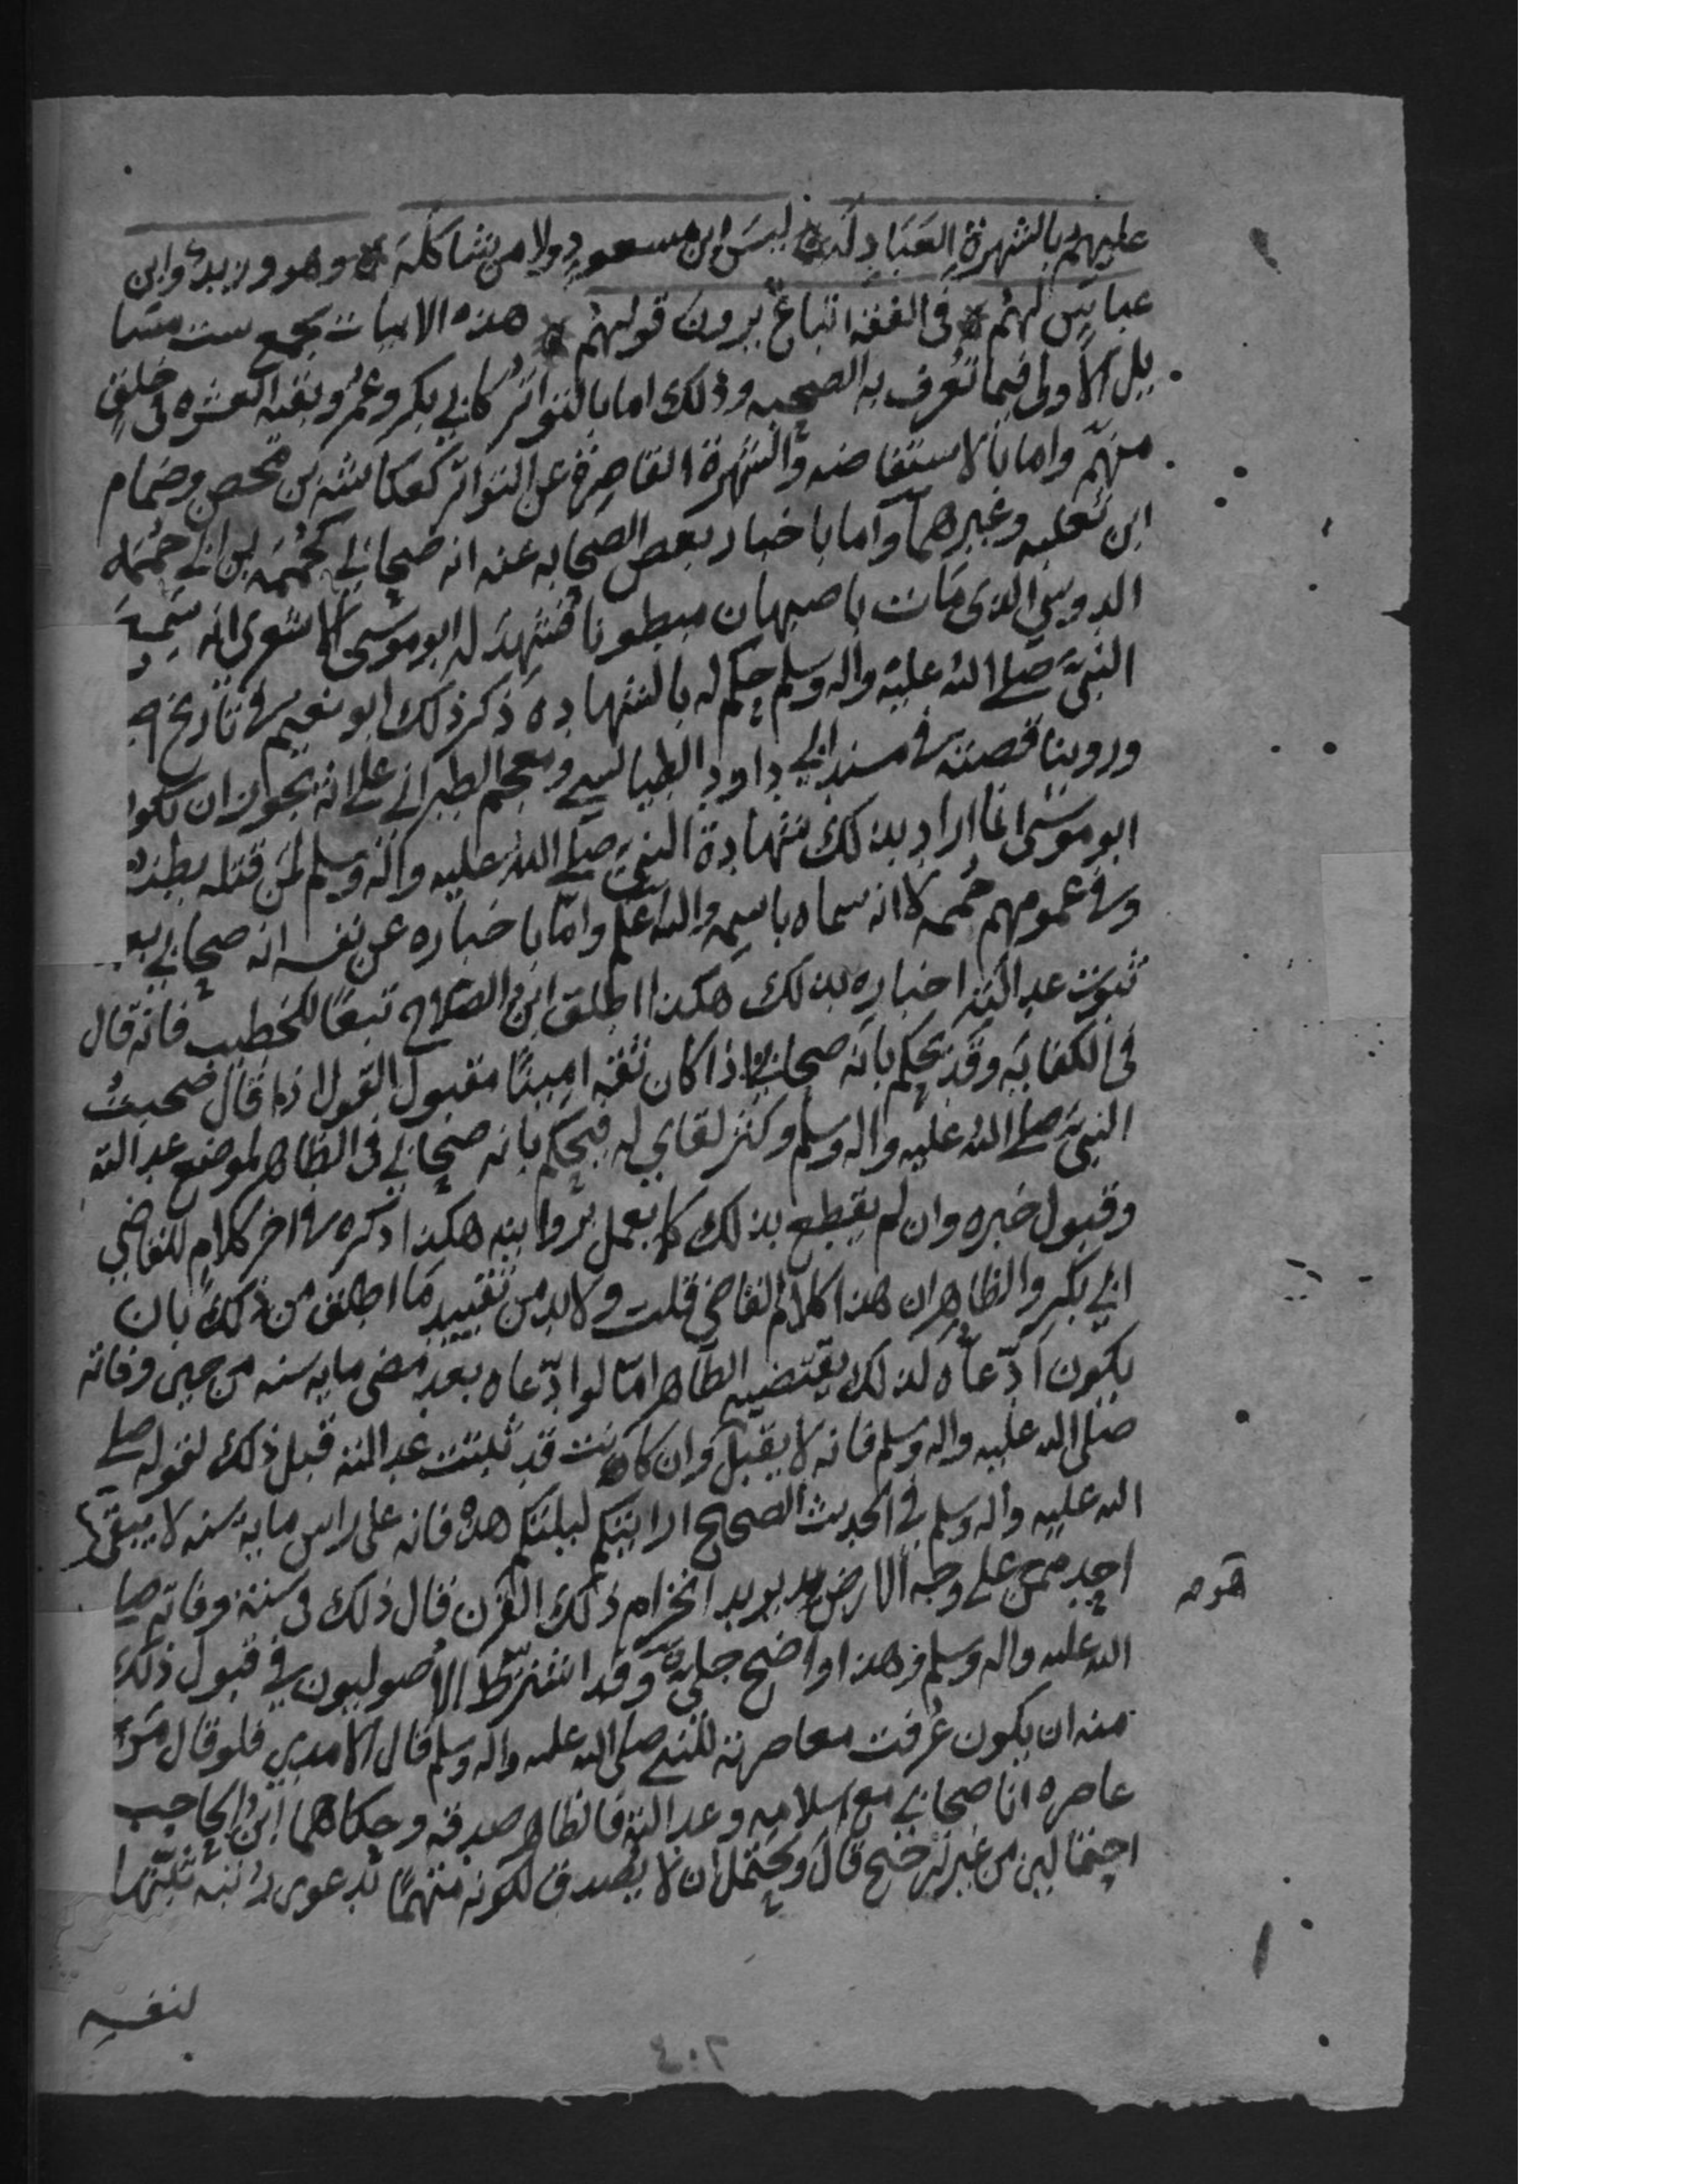 عليهم بالشهرة العبادله ليس ابن مسعود ولا من شاكله وهو وزيد وابن
عباس لهم في الفقه اتباع يرون قولهم هذه الابيات تجمع ست مسا
يل الاولى فيما تعرف به الصحبه وذلك اما بالتواتر كابي بكر وعمر وبقيه العشره في خلق
منهم واما بالاستفاضه والشهرة القاصرة عن التواتر كعكاشه بن محصن وضمام
ابن ثعلبه وغيرهما واما باخبار بعض الصحابه عنه انه صحابي كحممه بن ابي حممه
الدوسي الذي مات باصبهان مبطونا فشهد له ابو موسى الاشعري انه سمع
النبي صلى الله عليه واله وسلم حكم له بالشهاده ذكر ذلك ابو نعيم في تاريخ
وروينا قصته في مسند ابي داود الطيالسي ومعجم الطبراني على انه يجوز ان يكوا
ابو موسى انما اراد بذلك شهادة النبي صلى الله عليه واله وسلم لمن قتله بطنه
وفي عمومهم حممه لا انه سماه باسمه والله اعلم واما باخباره عن نفسه انه صحابي بعد
ثبوت عدالته اخباره بذلك هكذا اطلق ابن الصلاح تبعا للخطيب فانه قال
في الكفايه وقد يحكم بانه صحابي اذا كان ثقه امينا مقبول القول اذا قال صحبت
النبي صلى الله عليه واله وسلم وكثر لقاي له فيحكم بانه صحابي في الظاهر لموضع عدالته
وقبول خبره وان لم يقطع بذلك كما يعمل بروايته هكذا ذكره في اخر كلام للقاضي
ابي بكر والظاهر ان هذا كلام القاضي قلت ولا بد من تقييد ما اطلق من ذلك بان
يكون ادعاه لذلك يقتضيه الظاهر اما لو ادعاه بعد مضي مايه سنه من حين وفاته
صلى الله عليه واله وسلم فانه لا يقبل وان كانت قد ثبتت عدالته قبل ذلك لقوله صلى
الله عليه واله وسلم في الحديث الصحيح ارايتكم ليلتكم هذه فانه على راس مايه سنه لا يبقى
احد ممن على وجه الارض يريد انخرام ذلك القرن قال ذلك في سنة وفاته صلى
هو م
الله عليه واله وسلم وهذا واضح جلي وقد اشترط الاصوليون في قبول ذلك
منه ان يكون عرفت معاصرته للنبي صلى الله عليه واله وسلم قال الامدي فلو قال من
عاصره انا صحابي مع اسلامه وعدالته فالظاهر صدقه وحكاهما ابن الحاجب
احتمالين من غير ترجيح قال ويحتمل ان لا يصدق لكونه متهما بدعوى رتبه يثبتها
لنفسه
٤٠٢